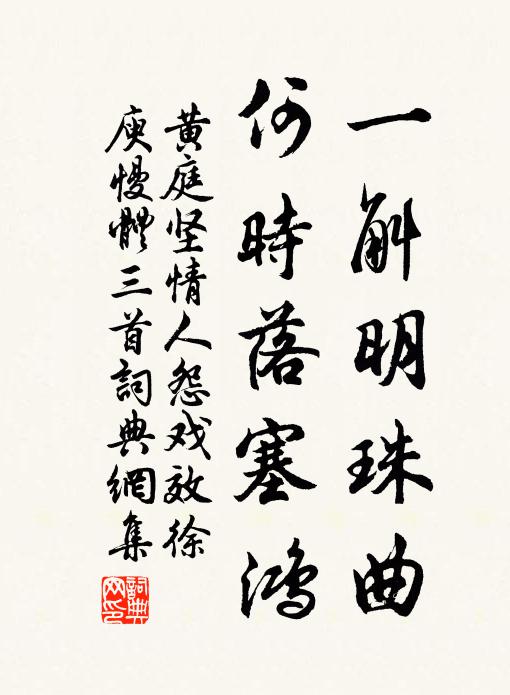 一斛明珠曲
何時落塞鴻
黄庭坚情人怨戏效徐
庾慢體三首詞典網集
詞典网印